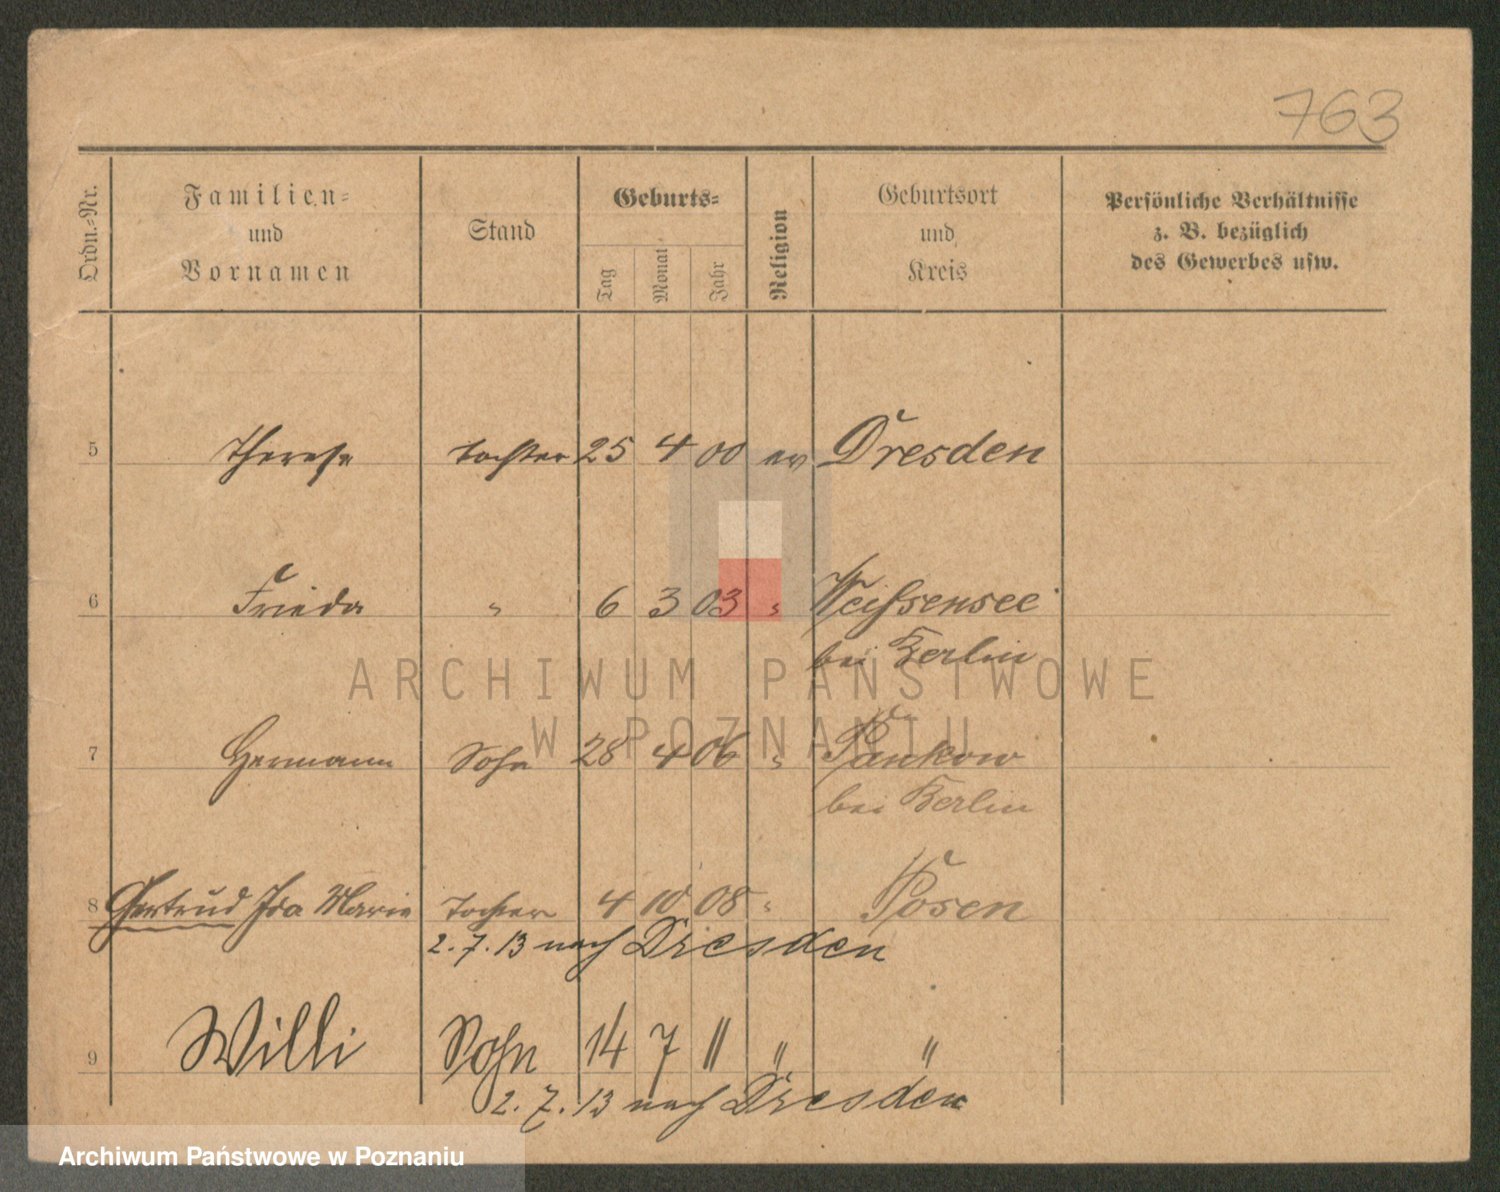 763
Ordn.-Nr.
Familien-
und
Vornamen
Stand
Geburts-
Tag
Monat
Jahr
Religion
Geburtsort
und
Kreis
Persönliche Verhältnisse
z. B. bezüglich
des Gewerbes usw.
5 Therese Tochter 25 4 00 ev Dresden
6 Frieda " 6 3 03 " Weißensee
bei Berlin
ARCHIWUM PAŃSTWOWE
W POZNANIU
7 Hermann Sohn 28 4 06 " Pankow
bei Berlin
8 Gertrud Ida Marie Tochter 4 10 08 " Posen
2. 7. 13 nach Dresden
9 Willi Sohn 14 7 11 " "
2. 7. 13 nach Dresden
Archiwum Państwowe w Poznaniu